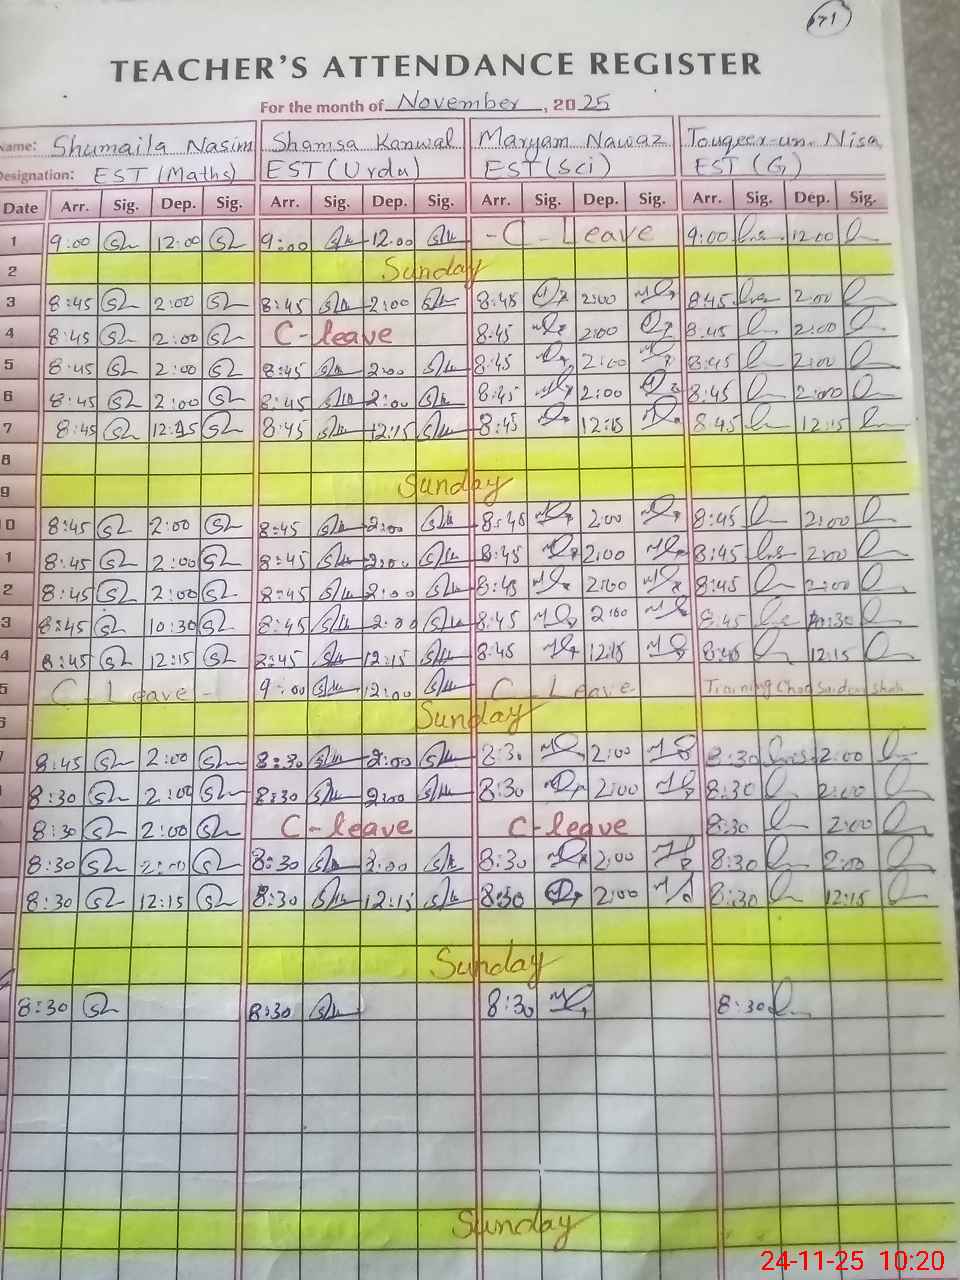 71
TEACHER'S ATTENDANCE REGISTER
For the month of November, 2025
Name: Shumaila Nasim Shamsa Kanwal Maryam Nawaz Touqeer-un-Nisa
Designation: EST (Maths) EST (Urdu) EST (Sci) EST (G)
Date Arr. Sig. Dep. Sig. Arr. Sig. Dep. Sig. Arr. Sig. Dep. Sig. Arr. Sig. Dep. Sig.
1 9:00 12:00 9:00 12:00 - C - Leave 9:00 12:00
2 Sunday
3 8:45 2:00 8:45 2:00 8:45 2:00 8:45 2:00
4 8:45 2:00 C-leave 8:45 2:00 8:45 2:00
5 8:45 2:00 8:45 2:00 8:45 2:00 8:45 2:00
6 8:45 2:00 8:45 2:00 8:45 2:00 8:45 2:00
7 8:45 12:15 8:45 12:15 8:45 12:15 8:45 12:15
8
9 Sunday
0 8:45 2:00 8:45 2:00 8:45 2:00 8:45 2:00
1 8:45 2:00 8:45 2:00 8:45 2:00 8:45 2:00
2 8:45 2:00 8:45 2:00 8:45 2:00 8:45 2:00
3 8:45 10:30 8:45 2:00 8:45 2:00 8:45 10:30
4 8:45 12:15 8:45 12:15 8:45 12:15 8:45 12:15
5 C - Leave - 9:00 12:00 C - Leave Training
6 Sunday
8:45 2:00 8:30 2:00 8:30 2:00 8:30 2:00
8:30 2:00 8:30 2:00 8:30 2:00 8:30 2:00
8:30 2:00 C-leave C-leave 8:30 2:00
8:30 2:00 8:30 2:00 8:30 2:00 8:30 2:00
8:30 12:15 8:30 12:15 8:30 2:00 8:30 12:15
Sunday
8:30 8:30 8:30 8:30
Sunday
24-11-25 10:20